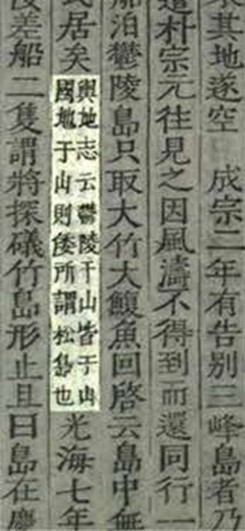 求其地遂空 成宗二年有告別三峰島者乃
遣朴宗元往見之因風濤不得到而還同行一
船泊鬱陵島只取大竹大鰒魚回啓云島中無
民居矣
輿地志云鬱陵于山皆于山
國地于山則倭所謂松島也
光海七年
倭差船二隻謂將探礒竹島形止且曰島在慶